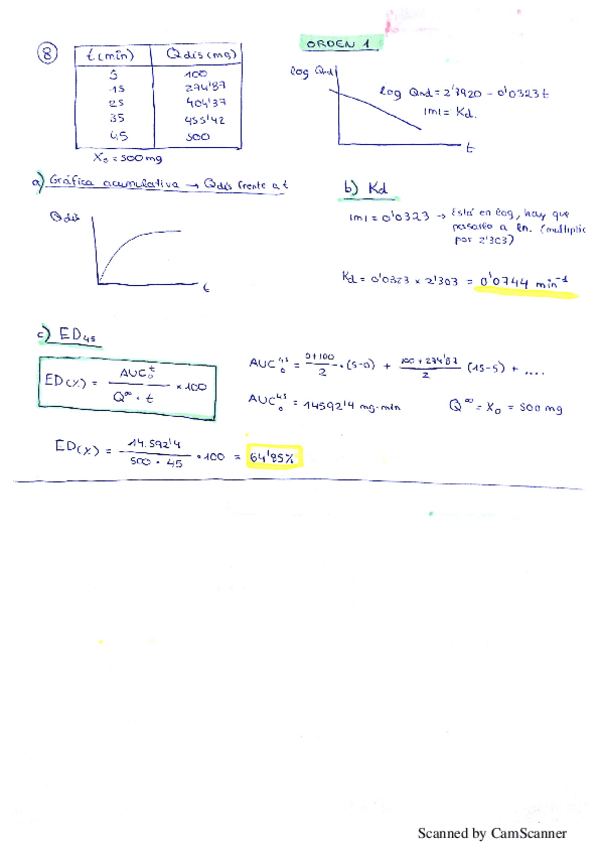 8
t (min) Qdis (mg)
5 100
15 274'87
25 404'37
35 455'42
45 500
X₀ = 500 mg
ORDEN 1
log Qnd
log Qnd = 2'7920 - 0'0323 t
|m| = Kd.
t
a) Gráfica acumulativa → Qdis frente a t
Qdis
t
b) Kd
|m| = 0'0323 → Está en log, hay que
pasarlo a ln. (multiplic
por 2'303)
Kd = 0'0323 × 2'303 = 0'0744 min⁻¹
c) ED₄₅
ED(%) = AUC₀ᵗ / Q∞ · t × 100
AUC₀⁴⁵ = 0+100 / 2 · (5-0) + 100+274'87 / 2 (15-5) + ....
AUC₀⁴⁵ = 14592'4 mg·min Q∞ = X₀ = 500 mg
ED(%) = 14.592'4 / 500 · 45 · 100 = 64'85%
Scanned by CamScanner